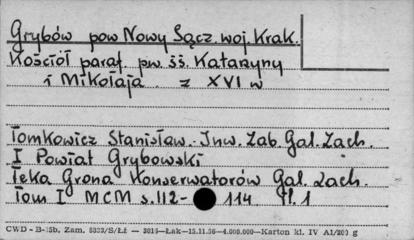 Grybów pow Nowy Sącz woj. Krak.
Kościół paraf. pw. śś. Katarzyny
i Mikołaja z XVI w
Tomkowicz Stanisław. Inw. Zab. Gal. Zach.
I Powiat Grybowski
Teka Grona Konserwatorów Gal. Zach.
Tom I MCM s. 112- 114 Pl. 1
CWD - B-15b, Zam. 5333/S/Łź — 3015—Łak—15.11.56—4.000.000—Karton kl. IV A1/200 g